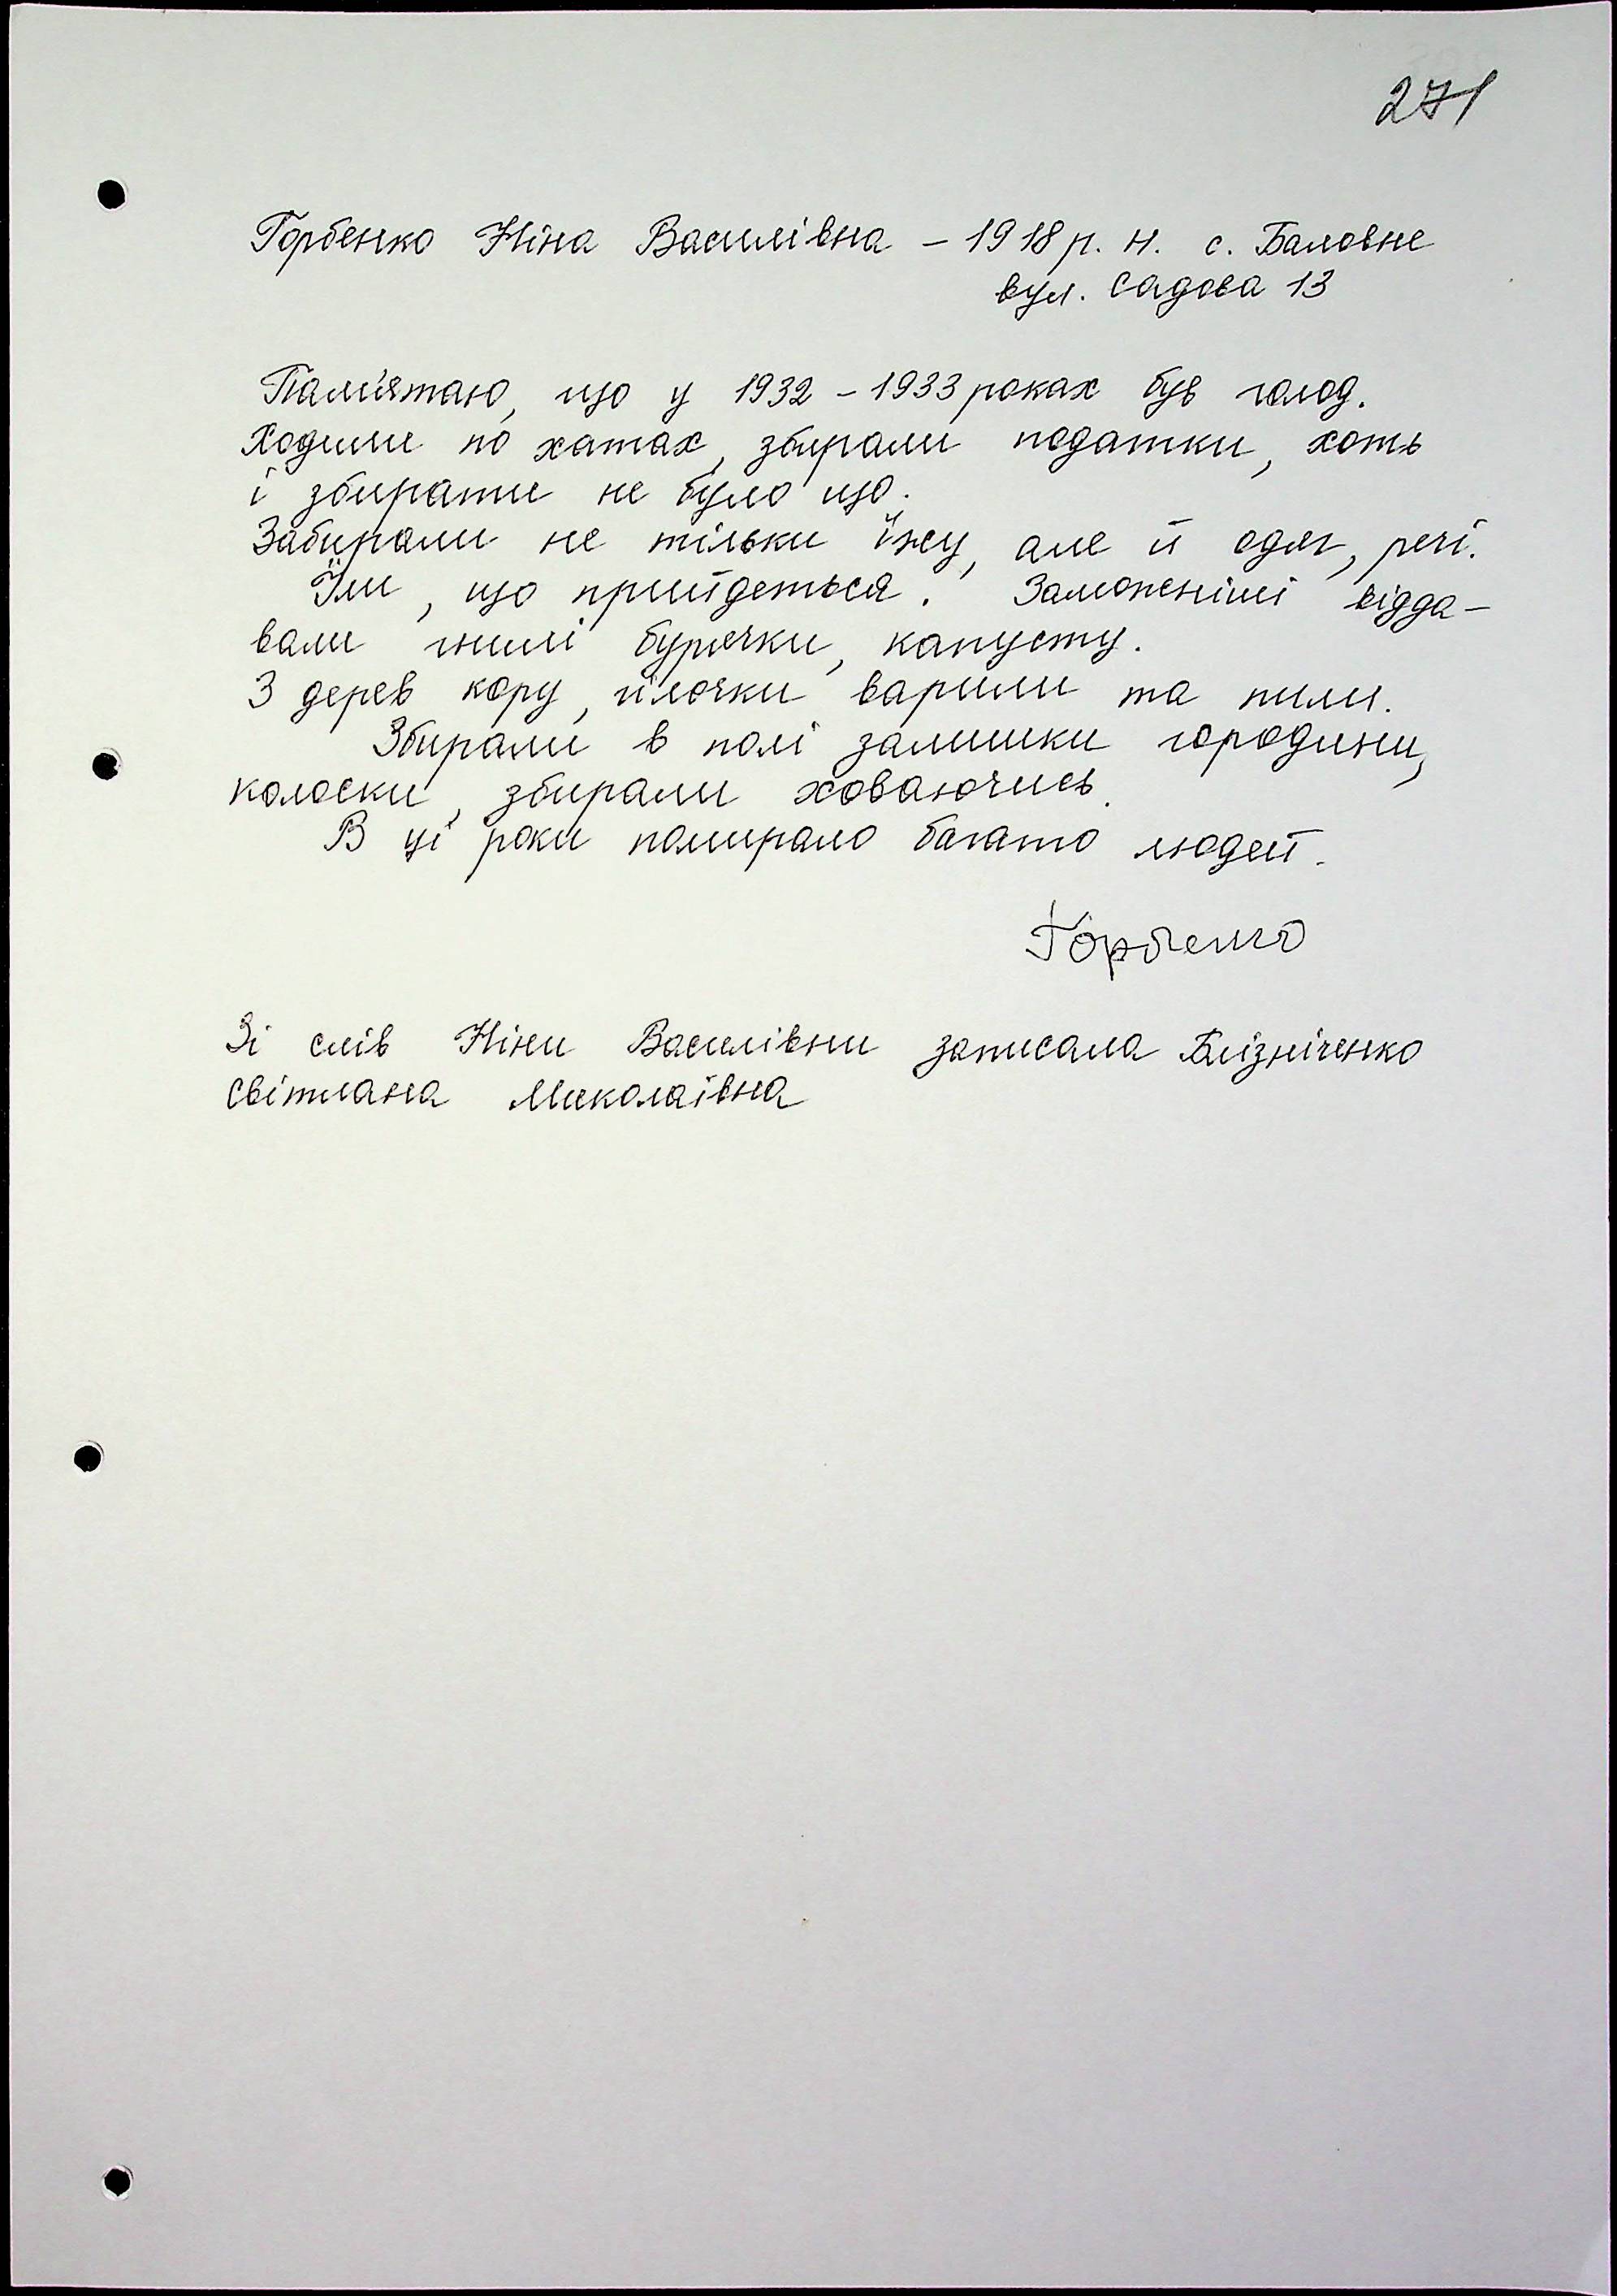 271
Горбенко Ніна Василівна - 1918 р. н. с. Баловне
вул. Садова 13
Пам'ятаю, що у 1932 - 1933 роках був голод.
Ходили по хатах, збирали податки, хоть
і збирати не було що.
Забирали не тільки їжу, але й одяг, речі.
Їли, що прийдеться. Заможніші відда-
вали гнилі бурячки, капусту.
З дерев кору, гілочки варили та пили.
Збирали в полі залишки городини,
колоски, збирали ховаючись.
В ці роки помирало багато людей.
Горбенко
Зі слів Ніни Василівни записала Блізніченко
Світлана Миколаївна